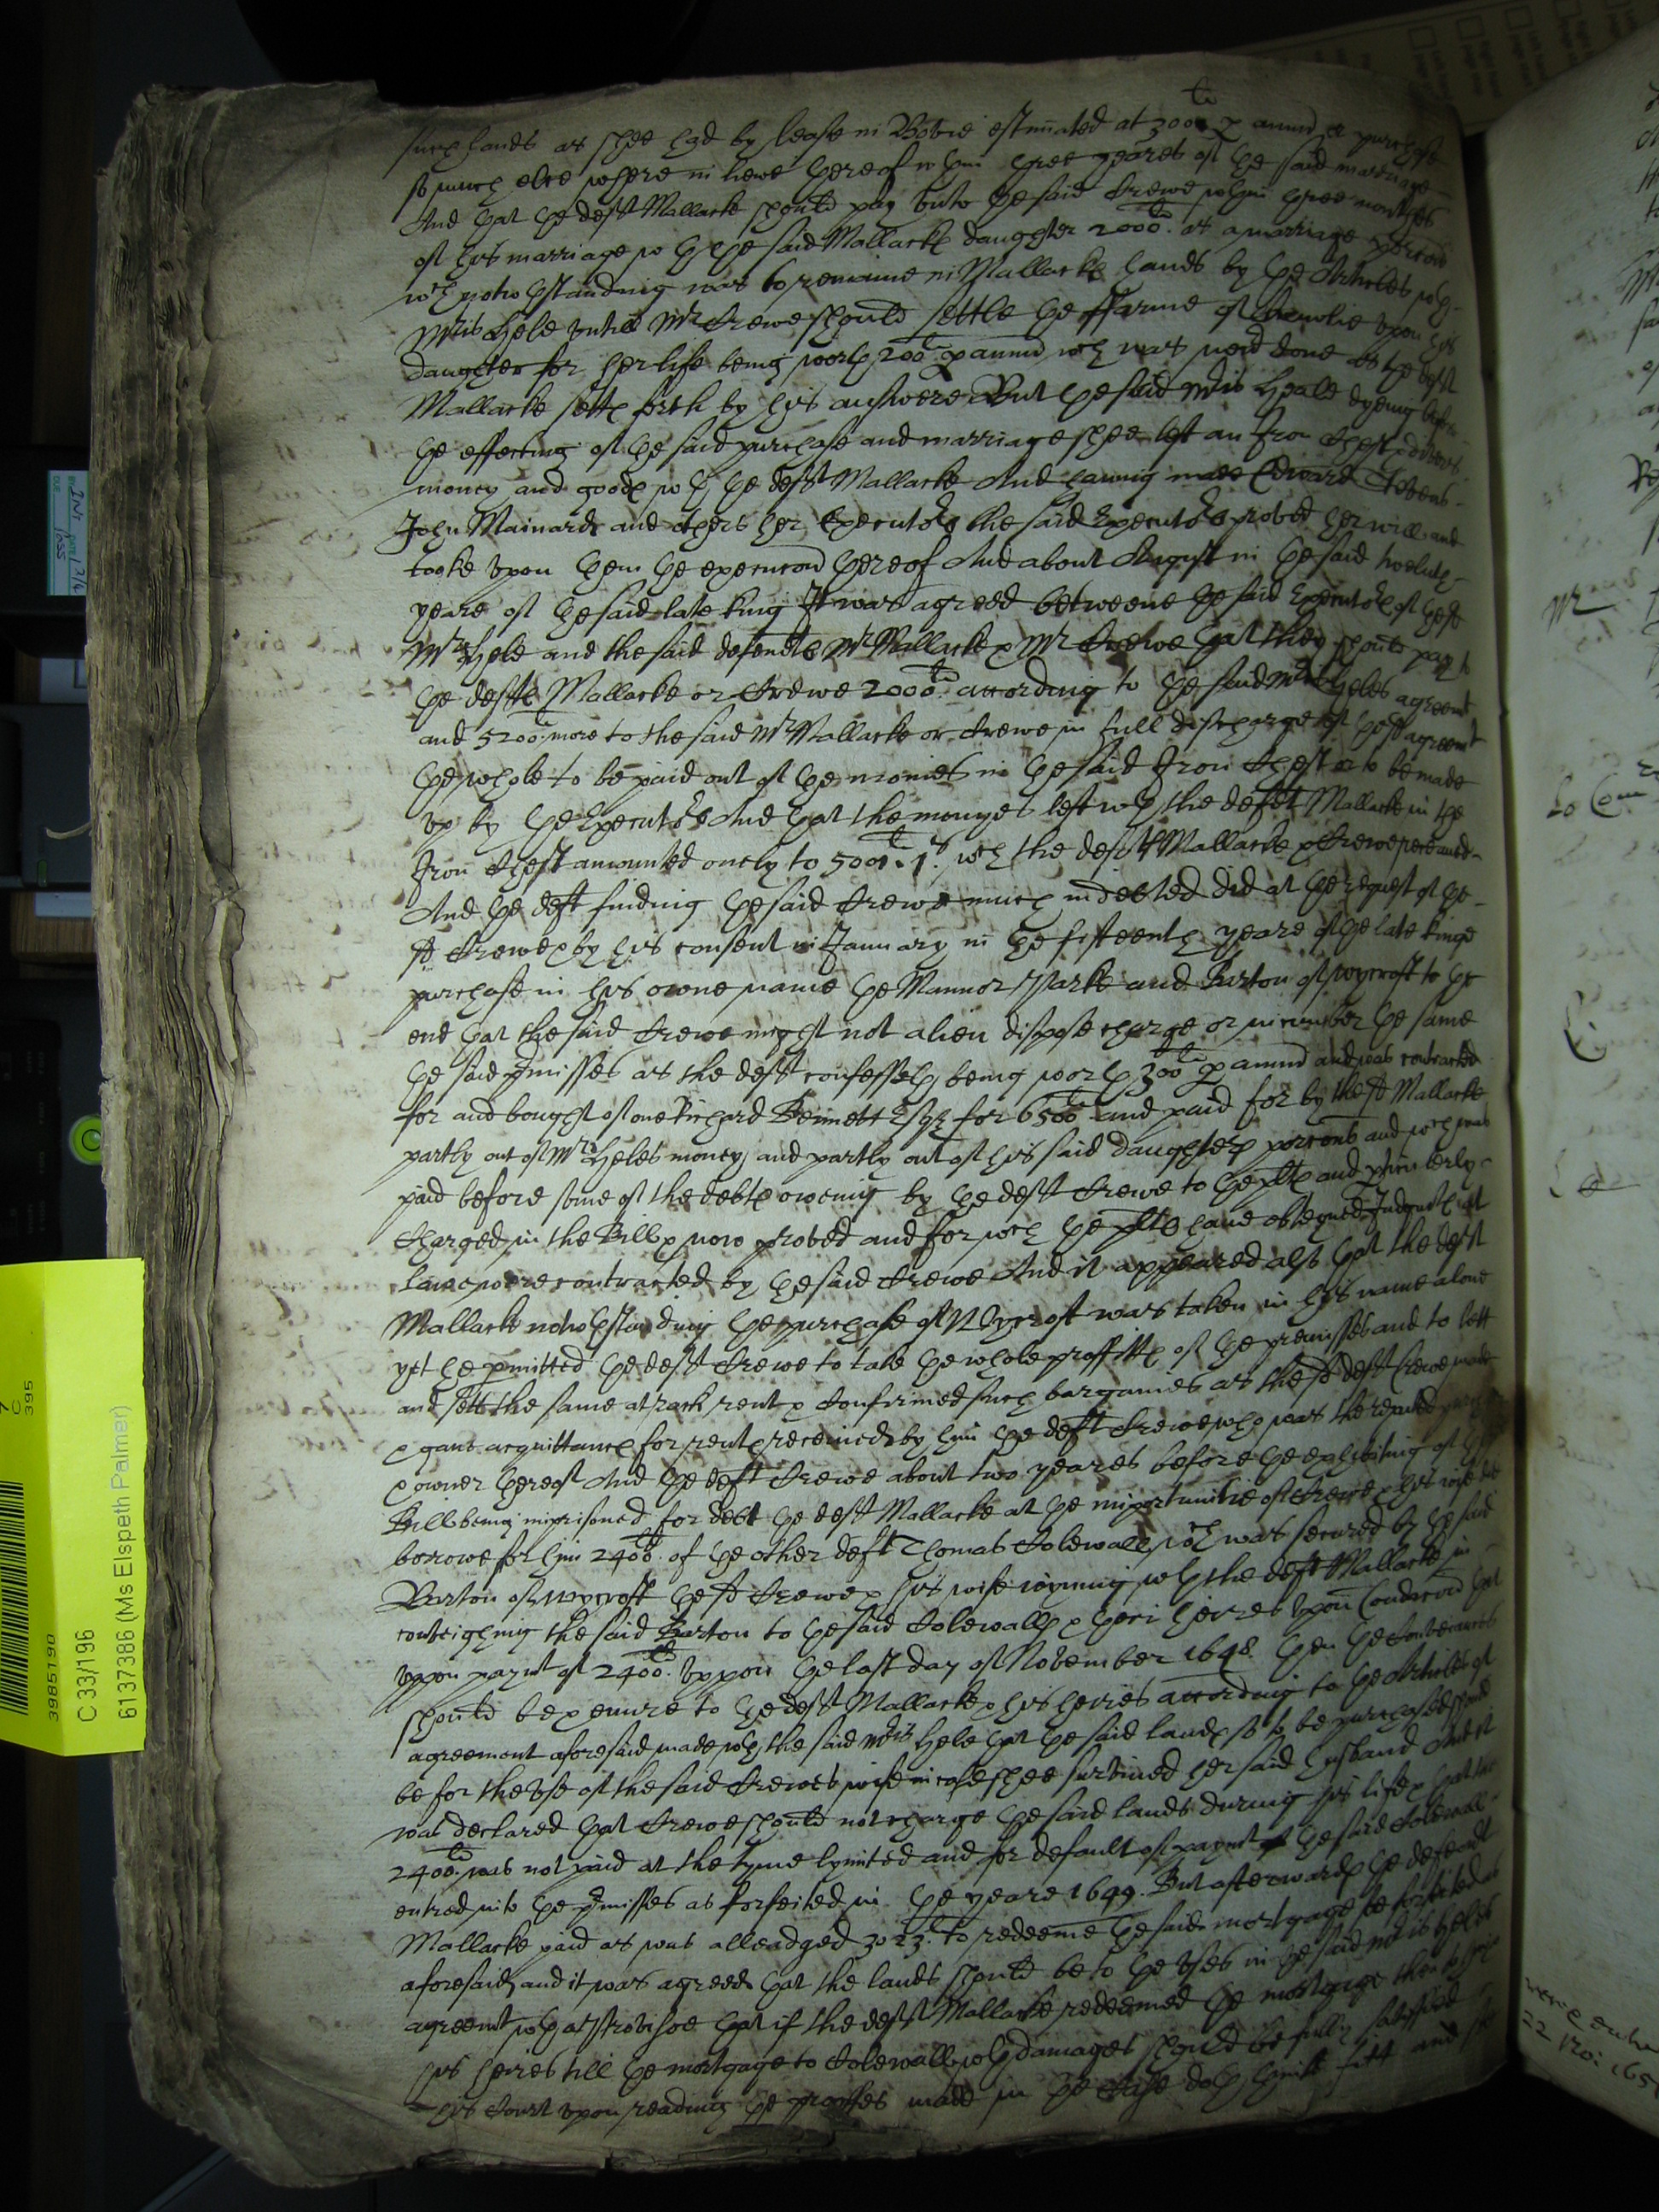 such lands as shee had by lease in Bovie estimated at 300li p annu & purchase
so much else where in liewe thereof wthin three yeares of the said marriage
And that the deft Mallacke should pay unto the said Crewe wthin three monthes
of his marriage wth the said Mallacke daughter 2000li as a marriage porcon
wch notwthstanding was to remaine in Mallacke hands by the Articles wth
Mris Hele untill Mr Crewe should settle the ffarme of upon his
daughter for her life being worth 200li p annu wch was never done as the deft
Mallacke setts forth by his answere But the said Mris Heale dyeing before
the effecting of the said purchase and marriage shee left an Iron Chest & divers
money and goods wth the deft Mallacke And having made Edward Stevens
John Mainard and others her Executors the said Executors proved her will and
tooke upon them the execucon thereof And about August in the said twelveth
yeare of the said late King It was agreed betweene the said Executors of the sd
Mris Hele and the said defendts Mr Mallacke & Mr Crewe that they should pay to
the defts Mallacke or Crewe 2000li according to the said Mris Heles agreemt
and 5200li more to the said Mr Mallacke or Crewe in full discharge of the sd agreemt
the whole to be paid out of the monies in the said Iron Chest & to be made
up by the Executors And that the monyes left wth the deft Mallacke in the
Iron Chest amounted onely to 5001li 1s wch the defts Mallacke & Crewe received
And the deft finding the said Crewe much indebted did at the request of the
sd Crewe & by his consent in January in the fifteenth yeare of the late Kinge
purchase in his owne name the Mannor Parke and Barton of Wycroft to the
end that the said Crewe might not alien dispose charge or incumber the same
the said pmisses as the deft confesseth being worth 300li p annu and was contracted
for and bought of one Richard Bennett Esqr for 6500li and paid for by the sd Mallacke
partly out of Mris Heles money and partly out of his said daughters porcons and wch was
paid before some of the debts oweing by the deft Crewe to the plts and pticulerly
Charged in the Bill & now proved and for wch the plts have obteyned Judgmts att
lawe were contracted by the said Crewe And it appeared also that the deft
Mallack notwthstanding the purchase of Wycroft was taken in his name alone
yet he pmitted the deft Crewe to take the whole proffitts of the premisses and to lett
and sett the same at rack rent & Confirmed such bargaines as the sd deft Crewe made
& gave acquittance for rents received by him the deft Crewe who was the reputed
& owner thereof And the deft Crewe about two yeares before the exhibiting of the
Bill being imprisoned for debt the deft Mallacke at the importunitie of Crewe & his wife did
borowe for him 2400li of the other deft Thomas Colewall wch was secured by the said
Barton of Wycroft the sd Crewe & his wife ioyning wth the deft Mallacke in
conveighing the said Barton to the said Colewall & their heires upon Condicon that
uppon paymt of 2400li uppon the last day of November 1648 then the Conveiance
should be & enure to the deft Mallacke & his heires according to the Articles of
agreement aforesaid made wth the said Mris Hele that the said lands so to be purchased should
be for the use of the said Crewes wife in case shee survived her said husband And it
was declared that Crewe should not charge the said lands during his life & that the
2400li was not paid at the tyme lymited and for default of paymt the said Colewall
entred into the pmisses as forfeited in the yeare 1649. But afterwards the defendt
Mallacke paid as was alleadged 3023li to redeeme the said mortgage so forfeited as
aforesaid and it was agreed that the lands should be to the uses in the said Mris Heles
agreemt wth a Provisoe that if the deft Mallacke redeemed the mortgage then to
his heires till the mortgage to Colewall wth damages should be fully satisfied
This Court upon reading the prooffes made in the Case doth thinke fitt and
Mr
22 Nov 165
C 33/196
3985190
61737386 (Ms Elspeth Palmer)
395